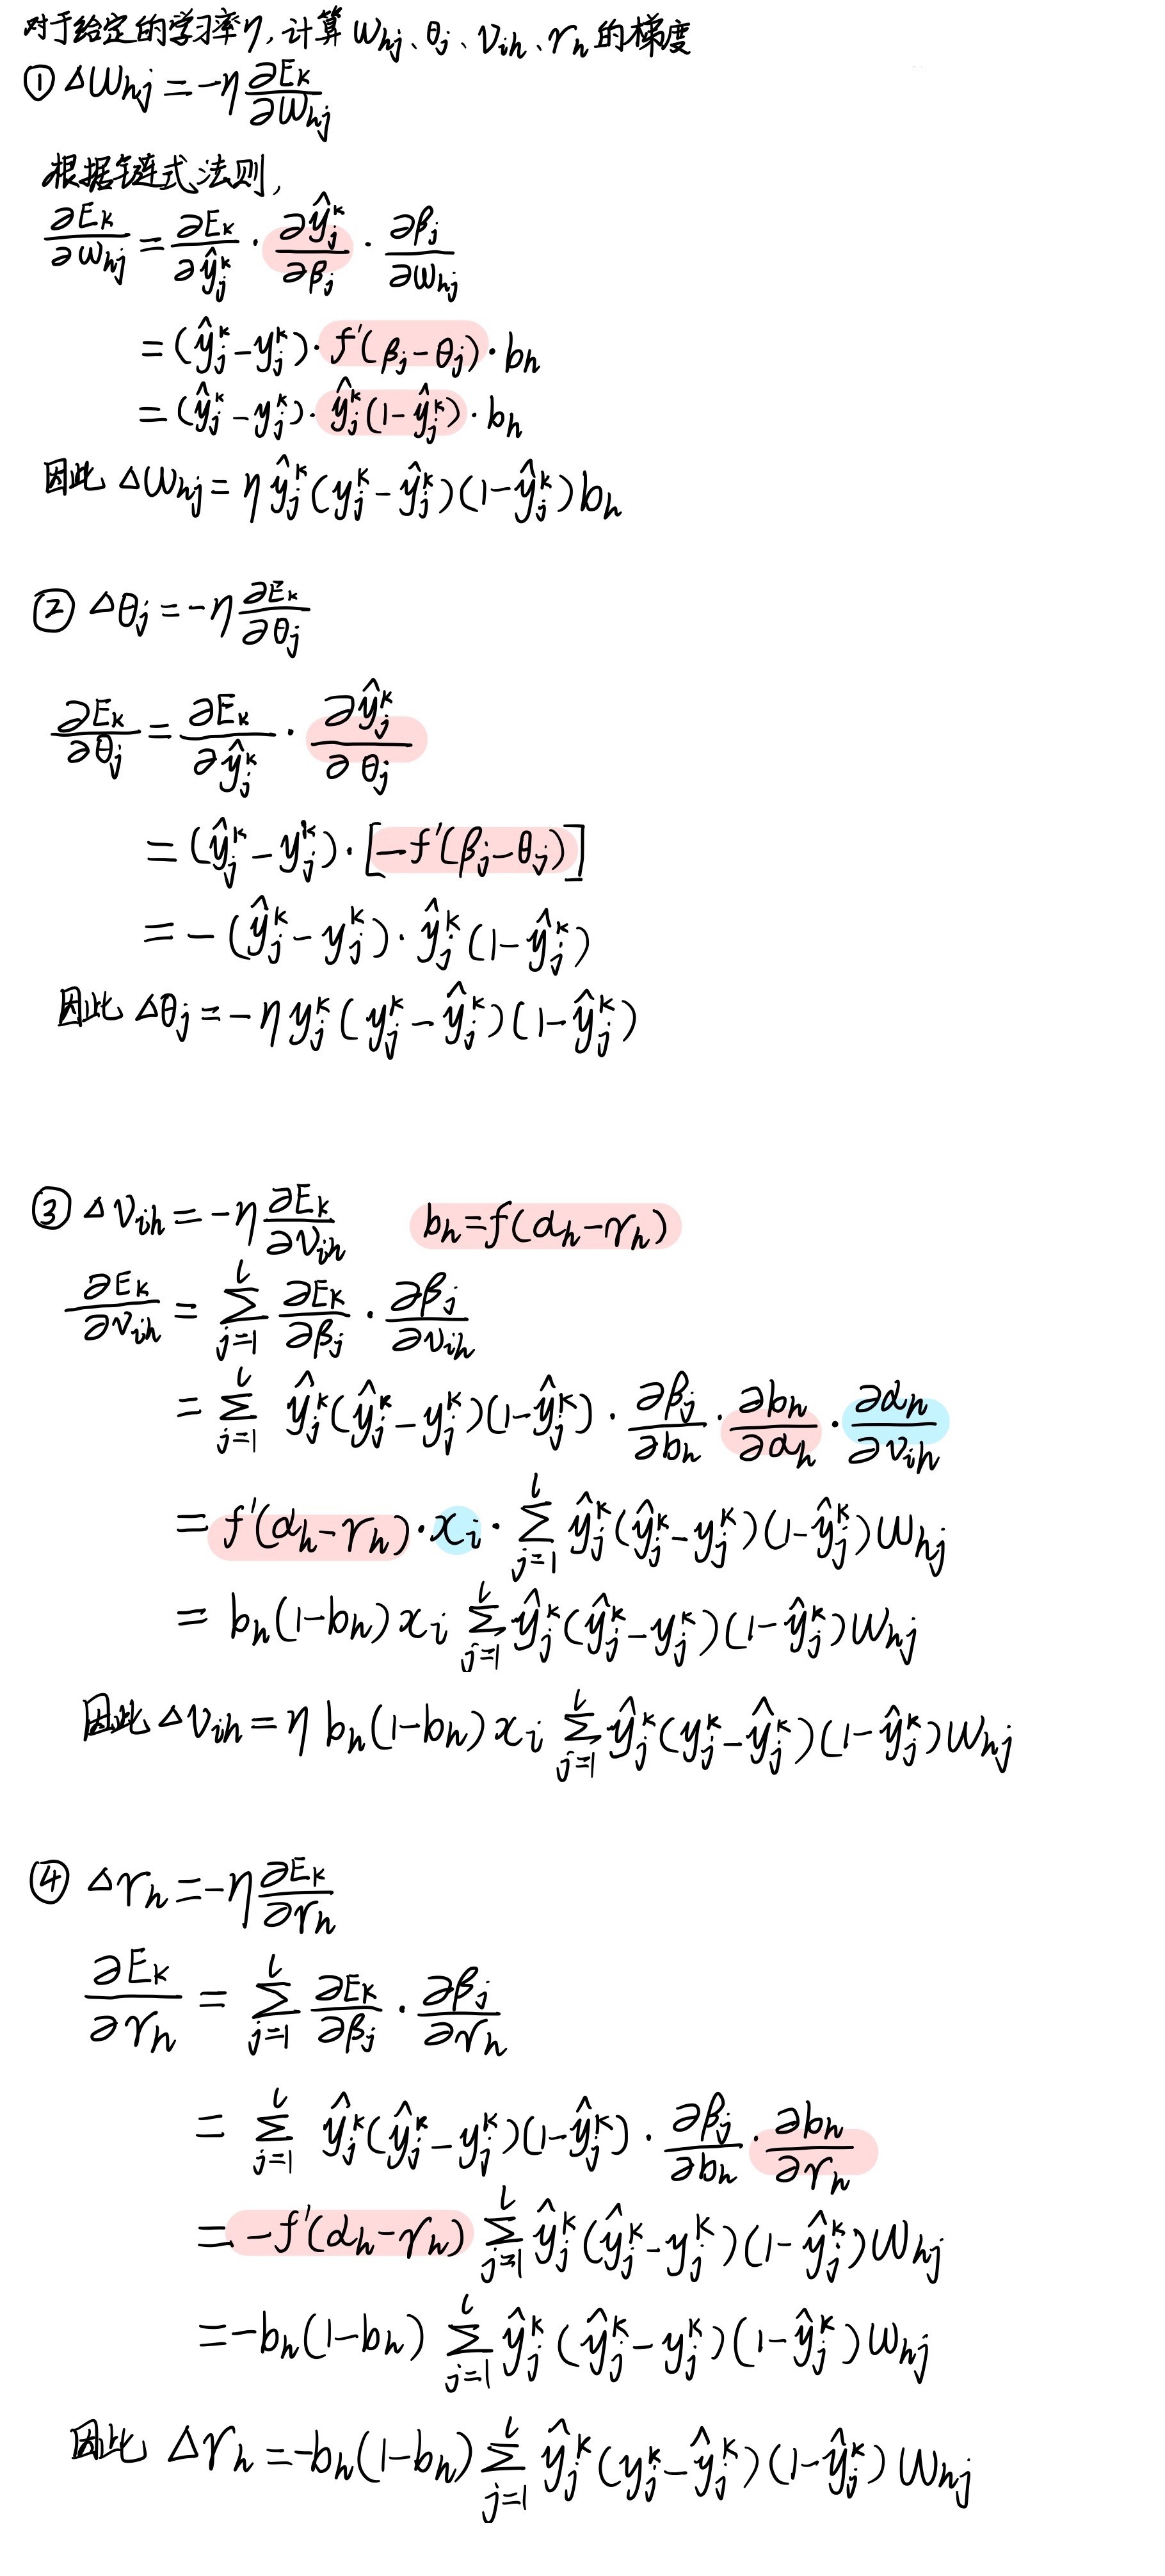 对于给定的学习率η,计算 w_{hj}、θ_j、v_{ih}、γ_h 的梯度
① Δw_{hj} = -η ∂E_k/∂w_{hj}
根据链式法则,
∂E_k/∂w_{hj} = ∂E_k/∂ŷ_j^k · ∂ŷ_j^k/∂β_j · ∂β_j/∂w_{hj}
= (ŷ_j^k - y_j^k) · f'(β_j - θ_j) · b_h
= (ŷ_j^k - y_j^k) · ŷ_j^k(1 - ŷ_j^k) · b_h
因此 Δw_{hj} = η ŷ_j^k (y_j^k - ŷ_j^k)(1 - ŷ_j^k) b_h
② Δθ_j = -η ∂E_k/∂θ_j
∂E_k/∂θ_j = ∂E_k/∂ŷ_j^k · ∂ŷ_j^k/∂θ_j
= (ŷ_j^k - y_j^k) · [-f'(β_j - θ_j)]
= - (ŷ_j^k - y_j^k) · ŷ_j^k (1 - ŷ_j^k)
因此 Δθ_j = -η y_j^k (y_j^k - ŷ_j^k)(1 - ŷ_j^k)
③ Δv_{ih} = -η ∂E_k/∂v_{ih} b_h = f(α_h - γ_h)
∂E_k/∂v_{ih} = Σ_{j=1}^{l} ∂E_k/∂β_j · ∂β_j/∂v_{ih}
= Σ_{j=1}^{l} ŷ_j^k(ŷ_j^k - y_j^k)(1 - ŷ_j^k) · ∂β_j/∂b_h · ∂b_h/∂α_h · ∂α_h/∂v_{ih}
= f'(α_h - γ_h) · x_i · Σ_{j=1}^{l} ŷ_j^k(ŷ_j^k - y_j^k)(1 - ŷ_j^k) w_{hj}
= b_h(1 - b_h) x_i Σ_{j=1}^{l} ŷ_j^k(ŷ_j^k - y_j^k)(1 - ŷ_j^k) w_{hj}
因此 Δv_{ih} = η b_h(1 - b_h) x_i Σ_{j=1}^{l} ŷ_j^k(y_j^k - ŷ_j^k)(1 - ŷ_j^k) w_{hj}
④ Δγ_h = -η ∂E_k/∂γ_h
∂E_k/∂γ_h = Σ_{j=1}^{l} ∂E_k/∂β_j · ∂β_j/∂γ_h
= Σ_{j=1}^{l} ŷ_j^k(ŷ_j^k - y_j^k)(1 - ŷ_j^k) · ∂β_j/∂b_h · ∂b_h/∂γ_h
= -f'(α_h - γ_h) Σ_{j=1}^{l} ŷ_j^k (ŷ_j^k - y_j^k)(1 - ŷ_j^k) w_{hj}
= -b_h(1 - b_h) Σ_{j=1}^{l} ŷ_j^k (ŷ_j^k - y_j^k)(1 - ŷ_j^k) w_{hj}
因此 Δγ_h = -b_h(1 - b_h) Σ_{j=1}^{l} ŷ_j^k (y_j^k - ŷ_j^k)(1 - ŷ_j^k) w_{hj}